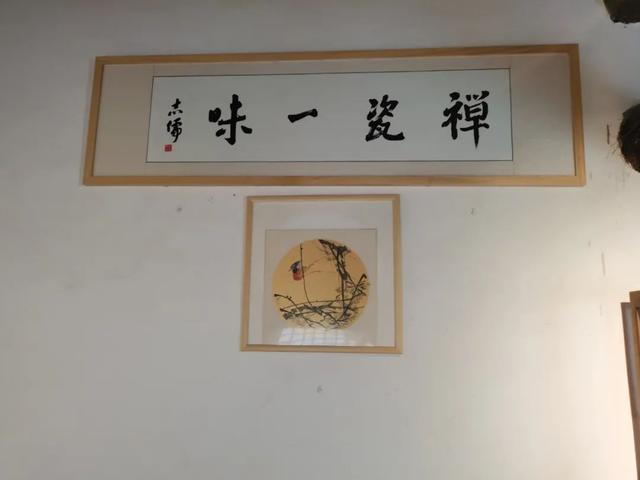 禅瓷一味
志儒